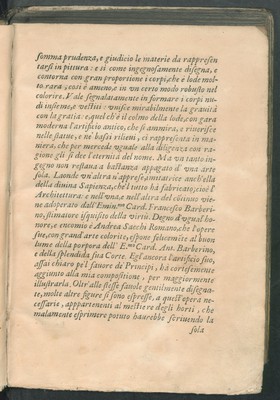 somma prudenza, e giudicio le materie da rappresen
tarsi in pittura: e si come ingegnosamente disegna, e
contorna con gran proportione i corpi, che e lode mol-
to rara; cosi è ameno, e in vn certo modo robusto nel
colorire. Vale segnalatamente in formare i corpi nu-
di insieme, e vestiti: vnisce mirabilmente la grauità
con la gratia: e quel ch'è il colmo della lode, con gara
moderna l'artificio antico, che si ammira, e riuerisce
nelle statue, e ne' bassi rilieui, ci rappresenta in ma
niera, che per mercede vguale alla diligenza con ra-
gione gli si dee l'eternità del nome. Ma vn tanto in-
gegno non restaua a bastanza appagato d'vna arte
sola. Laonde vn'altra n'apprese, imitatrice anch'ella
della diuina Sapienza, che'l tutto hà fabricato; cioè l'
Architettura: e nell'vna, e nell'altra del cōtinuo vie-
ne adoperato dall'Emin.mo Card. Francesco Barberi-
no, stimatore isquisito della virtù. Degno d'vgual ho-
nore, e encomio è Andrea Sacchi Romano, che l'opere
sue, con grand'arte colorite, espone felicemēte al buon
lume della porpora dell' E.mo Card. Ant. Barberino,
e della splendida sua Corte. Egl'ancora l'artificio suo,
assai chiaro pe'l fauore di Principi, hà cortesemente
aggiunto alla mia compositione, per maggiormente
illustrarla. Oltr'allo stesse fauole gentilmente disegna-
te, molte altre figure si sono espresse, a quest'opera ne-
cessarie, appartenenti al mestiere degli horti, che
malamente esprimere potuto haurebbe scriuendo la
sola